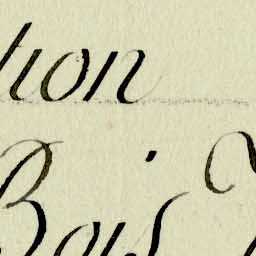 tion
Bois